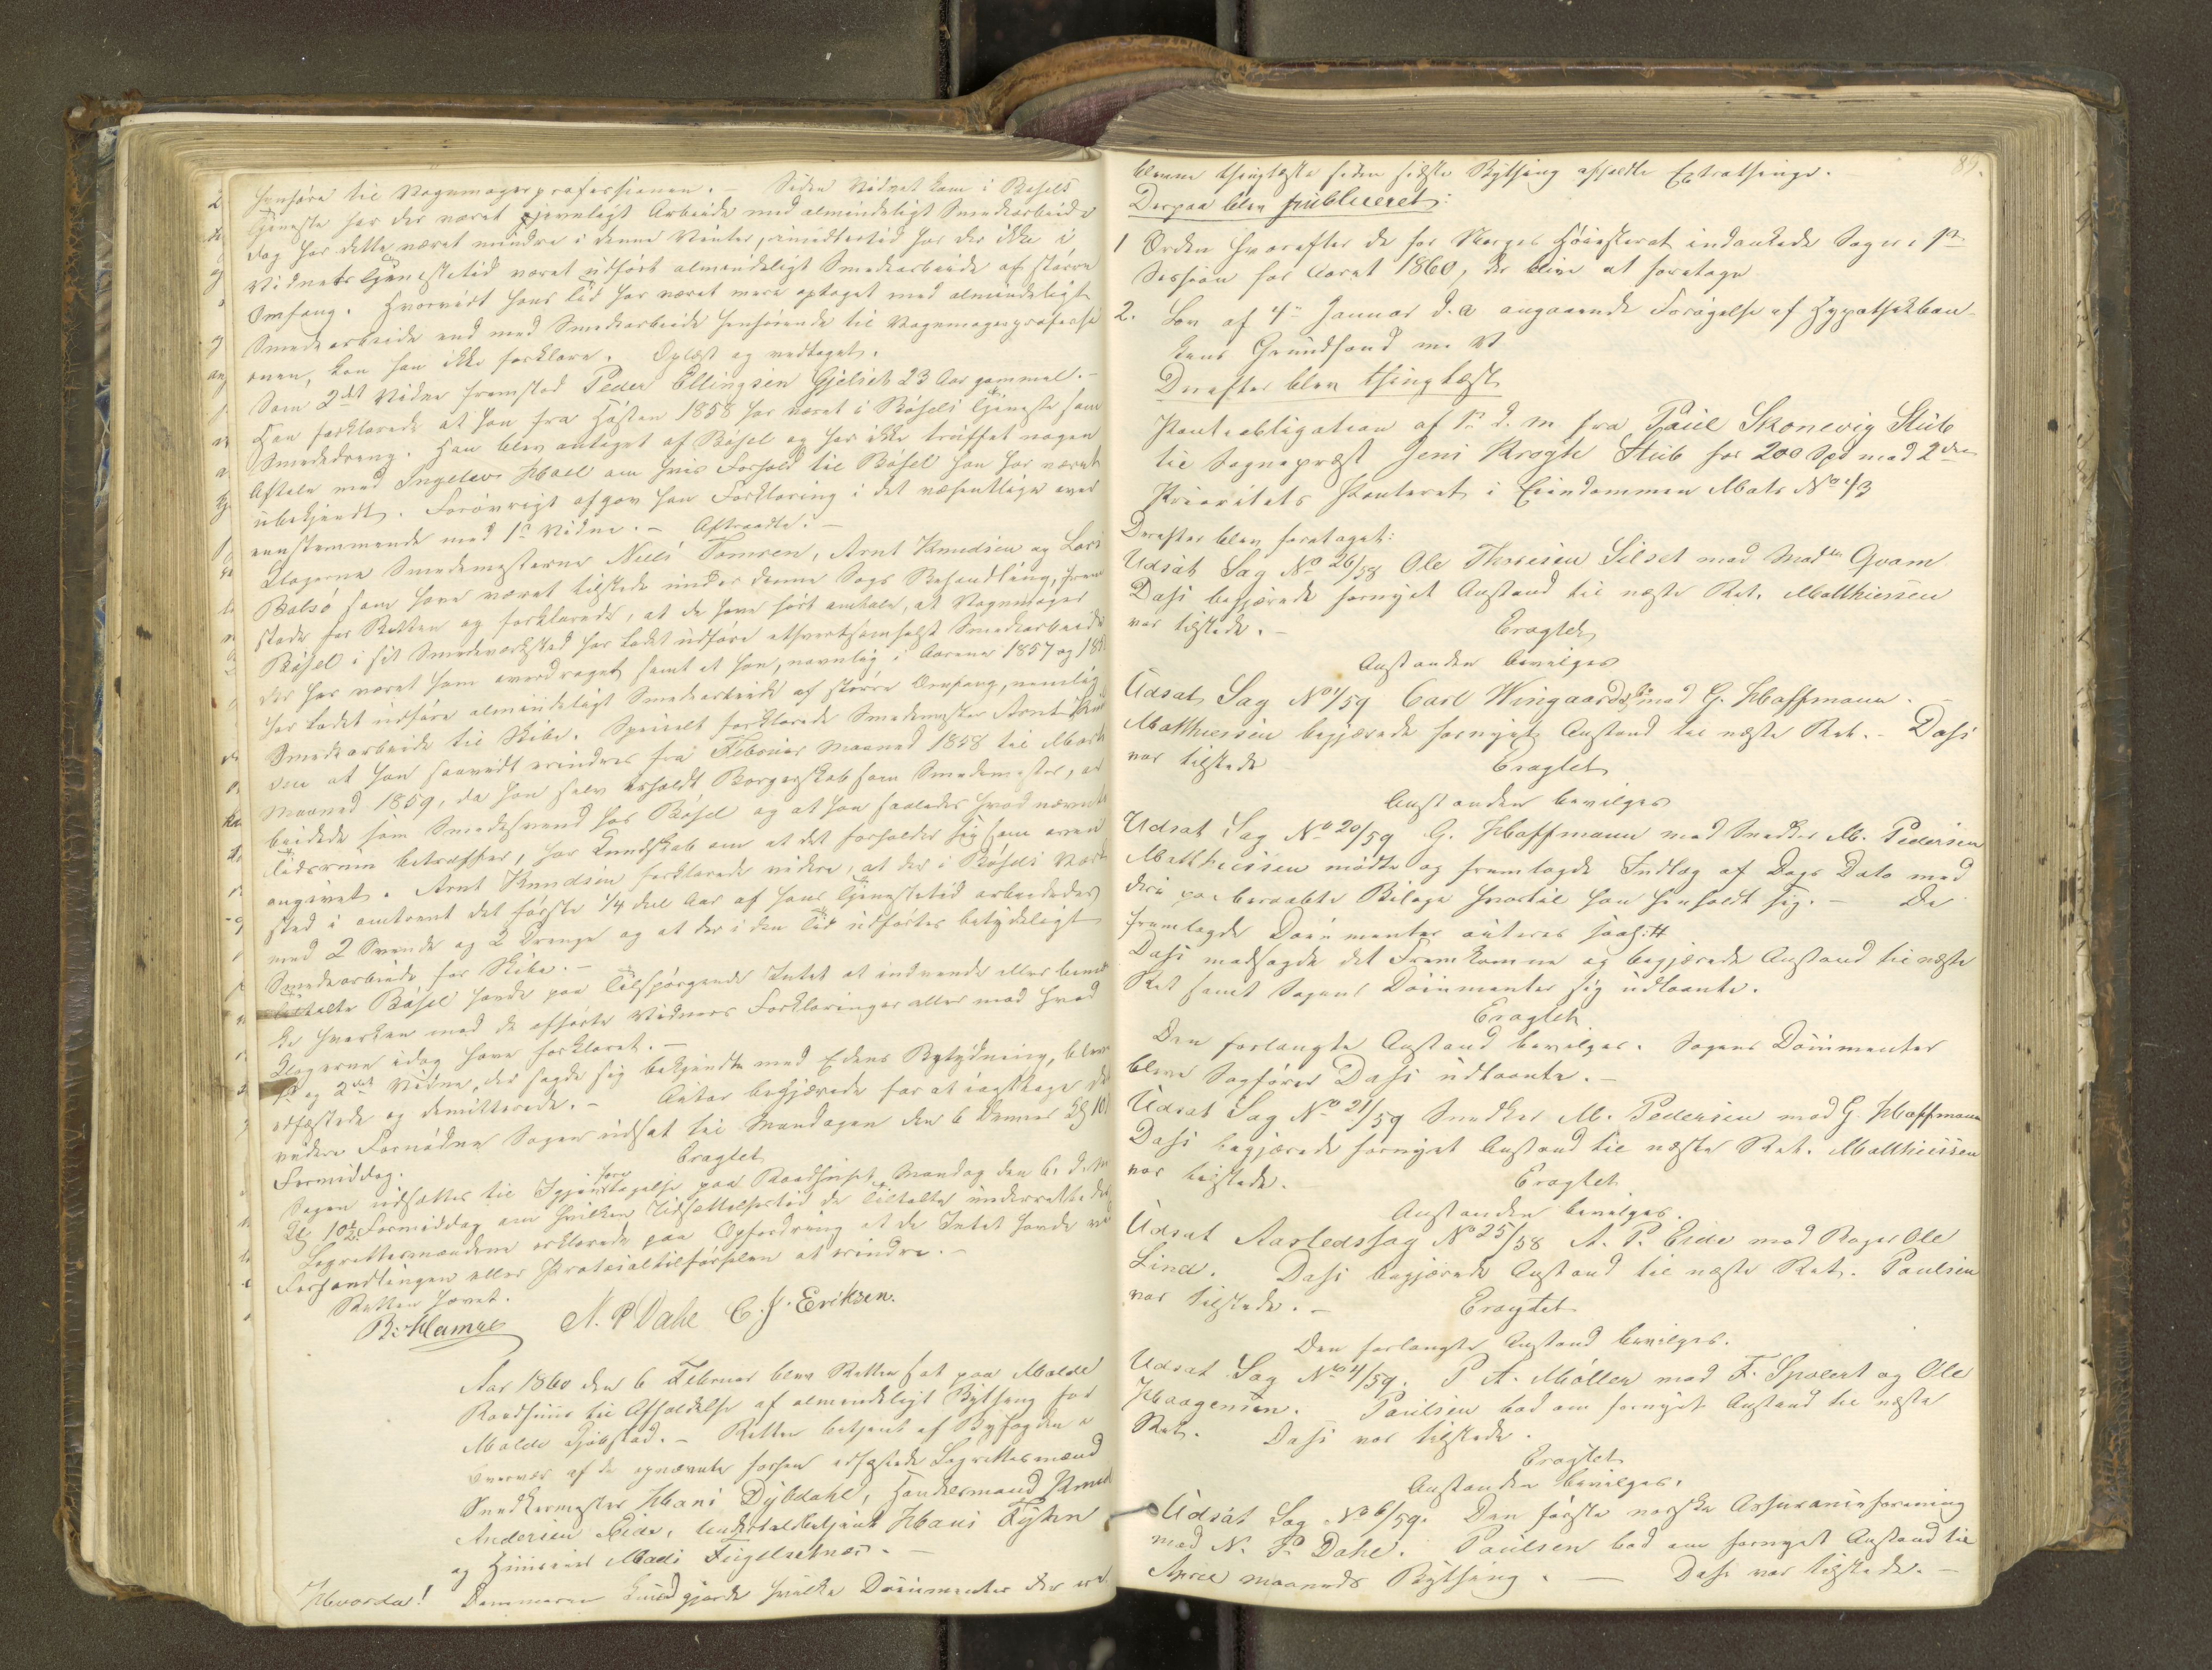 henføre til Vognmagerprofessionen. – Siden Vidnet kom i Bøsels
Tjeneste har der været jævnligt Arbeide med almindeligt Smedearbeide
dog har dette været mindre i denne Vinter, imidlertid har der ikke i
Vidnets Tjenestetid været udført almindeligt Smedearbeide af større
Omfang. Hvorvidt hans Tid har været mere optaget med almindeligt
Smedearbeide end med Smedearbeide henhørende til Vognmagerprofessi
onen, kan han ikke forklare. Oplæst og vedtaget.
Som 2det Vidne fremstod Peder Ellingsen Gjelset 23 Aar gammel. –
Han forklarede at han fra Høsten 1858 har været i Bøsels Tjeneste som
Smededreng. Han blev antaget af Bøsel og har ikke truffet nogen
Aftale med Ingebr. Moel om hvis Forhold til Bøsel han har været
ubekjendt. Forøvrigt afgav han Forklaring i det væsentlige over
eensstemmende med 1ste Vidne. – Aftraadte. –
Klagerne Smedemesterne Niels Tomren, Arnt Knudsen og Lars
Bolsø som have været tilstede under denne Sags Behandling, frem
stode for Retten og forklarede, at de have hørt omtale, at Vognmager
Bøsel i sit Smedeværksted har ladet udføre ethvertsomhelst Smedearbeide
der har været ham overdraget samt at han, navnlig i Aarene 1857 og 185
har ladet udføre almindeligt Smedearbeide af større Omfang, nemlig
Smedearbeide til Skibe. Specielt forklarede Smedemester Arnt Knud
sen at han saavidt erindres fra Februar Maaned 1858 til Marts
Maaned 1859, da han selv erholdt Borgerskab som Smedemester, ar
beidede som Smedesvend hos Bøsel og at han saaledes hvad nævnte
Tidsrum betræffer, har Kundskab om at det forholder sig som oven
angivet. Arnt Knudsen forklarede videre, at der i Bøsels Værk
sted i omtrent det første 1/4 deel Aar af hans Tjenestetid arbeidedes
med 2 Svende og 2 Drenge og at der i den Tid udførtes betydeligt
Smedearbeide for Skibe. –
Tiltalte Bøsel havde paa Tilspørgende Intet at indvende eller bemær
ke hverken mod de afhørte Vidners Forklaringer eller mod hvad
Klagerne idag have forklaret. –
1ste og 2det Vidne, der sagde sig bekjendte med Edens Betydning, bleve
edfæstede og demitterede. – Actor begjærede for at iagttage det
videre Fornødne Sagen udsat til Mandagen den 6 Dennes Kl 10½
Formiddag.
Eragtet
Sagen udsættes til Igjenforetagelse paa Raadhuset Mandag den 6. d. M
Kl 10½ Formiddag om hvilken Udsættelsestid de Tiltalte underrettedes
Lagrettesmændene erklærede paa Opfordring at de Intet havde ved
Forhandlingen eller Protocoltilførselen at erindre. –
Retten hævet.
N. P Dahl C. J. Eriksen.
Aar 1860 den 6 Februar blev Retten sat paa Molde
Raadhuus til Afholdelse af almindeligt Bything for
Molde Kjøbstad. – Retten betjent af Byfogden i
Overvær af de opnævnte forhen edfæstede Lagrettesmænd
Snedkermester Hans Dybdahl, Handelsmand Knud
Andersen Eide, Undertoldbetjent Hans Tyhen
og Huuseier Mads Fugelsetnæs. –
Hvorda! Dommeren kundgjorde hvilke Documenter der ere

89.
blevne thinglæste siden sidste Bything afholdte Extrathinge.
Derpaa blev publiceret:
1 Orden hvorefter de for Norges Høiesteret indankede Sager i 1ste
Session for Aaret 1860, der blive at foretage
2. Lov af 4de Januar d. a angaaende Forøgelse af Hypothekban
kens Grundfond m. V
Derefter blev thinglæst
Pantobligation af 1ste d. M fra Paul Skonevig Stub
til Sognepræst Jens Krogh Stub for 200 Spd med 2den
Prioritets Panteret i Eiendommen Matr No 43
Derefter blev foretaget:
Udsat Sag No 26/58 Ole Thoresen Silset mod Madm Qvam
Dahs begjærede fornyet Anstand til næste Ret. Matthiessen
var tilstede. –
Eragtet
Anstanden bevilges
Udsat Sag No 1/59 Carl Wingaards Bo mod G. Hoffmann. –
Matthiessen begjærede fornyet Anstand til næste Ret. – Dahs
var tilstede
Eragtet
Anstanden bevilges
Udsat Sag No 20/59 G. Hoffmann mod Snedker M. Pedersen
Matthiessen mødte og fremlagde Indlæg af Dags Dato med
deri paaberaabte Bilage hvortil han henholdt sig. – De
fremlagde Documenter acteres saal: #
Dahs modsagde det Fremkomne og begjærede Anstand til næste
Ret samt Sagens Documenter sig udlaante.
Eragtet
Den forlangte Anstand bevilges. Sagens Documenter
bleve Sagfører Dahs udlaante. –
Udsat Sag No 21/59 Snedker M. Pedersen mod G. Hoffmann
Dahs begjærede fornyet Anstand til næste Ret. Matthiessen
var tilstede.
Eragtet
Anstanden bevilges.
Udsat Aastedssag No 25/58 A. P. Eide mod Bager Ole
Lind. Dahs begjærede Anstand til næste Ret. Paulsen
var tilstede. –
Eragtet
Den forlangte Anstand bevilges.
Udsat Sag No 4/59. P A. Møller mod F. Spolert og Ole
Haagensen. Paulsen bad om fornyet Anstand til næste
Ret. Dahs var tilstede.
Eragtet
Anstanden bevilges.
Udsat Sag No 6/59. Den første norske Assuranceforening
mod N. P. Dahl. Paulsen bad om fornyet Anstand til
April Maaneds Bything. – Dahs var tilstede. –